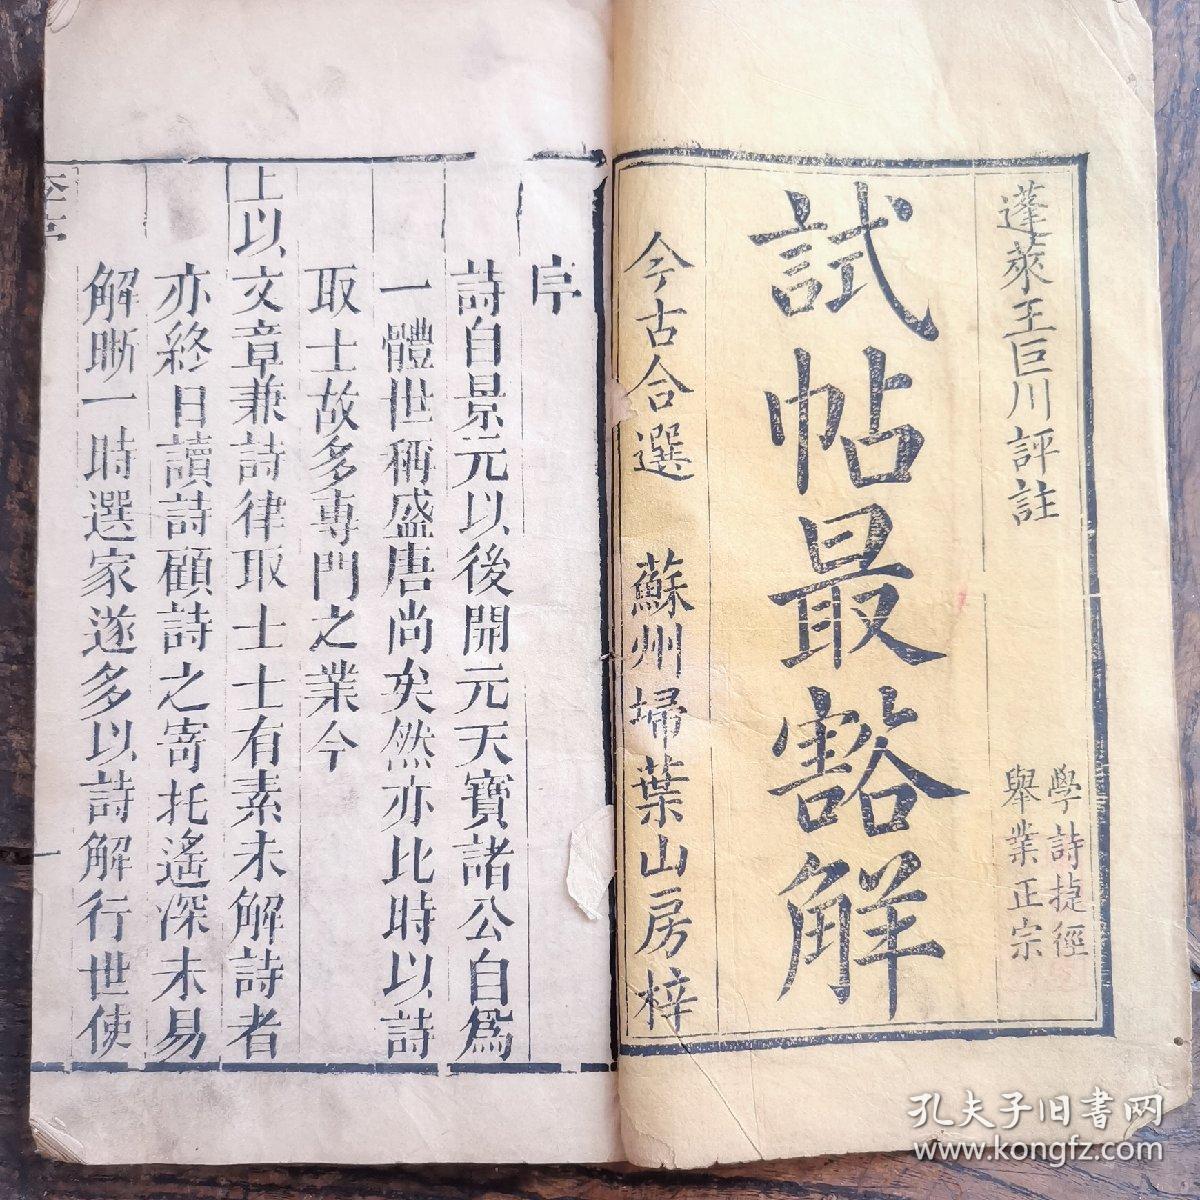 蓬萊王巨川評註
學詩捷徑
舉業正宗
試帖最豁解
今古合選
蘇州埽葉山房梓
序
詩自景元以後開元天寶諸公自爲
一體世稱盛唐尚矣然亦比時以詩
取士故多專門之業今
上以文章兼詩律取士士有素未解詩者
亦終日讀詩顧詩之寄托遙深未易
解晰一時選家遂多以詩解行世使
孔夫子旧书网
www.kongfz.com